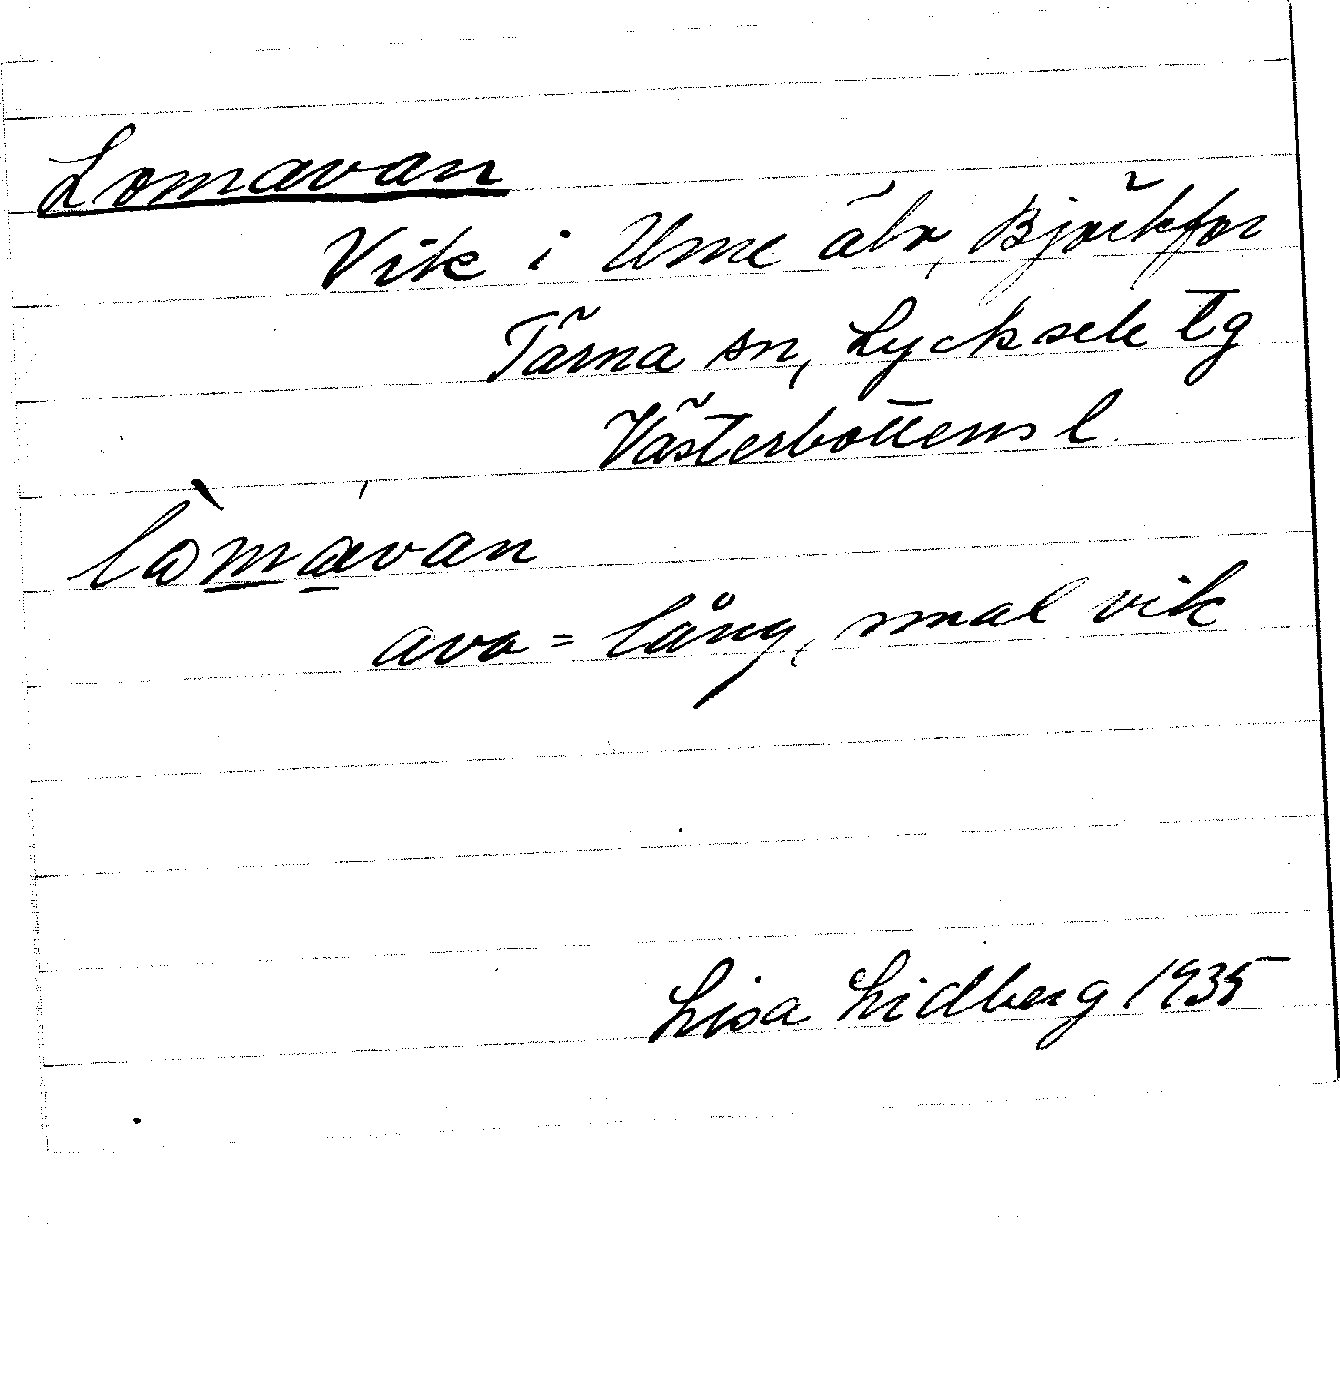 Lomavan
Vik i Ume älv, Björkfor
Tärna sn, Lycksele tg
Västerbottens l.
lòmávan
ava = lång, smal vik
Lisa Lidberg 1935